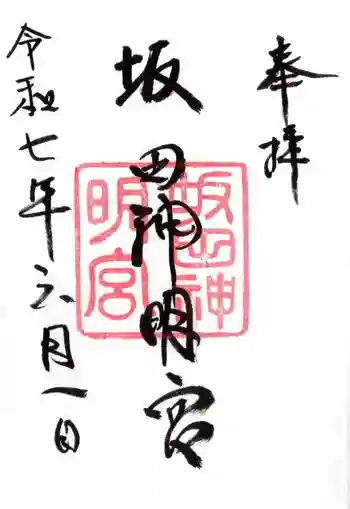 奉拝
坂田神明宮
坂田神明宮
令和七年六月一日